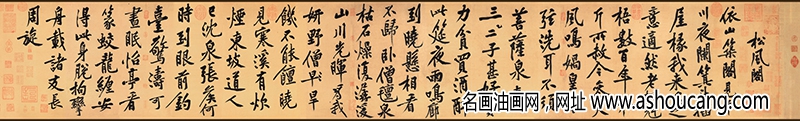 松風閣
依山築閣見平
川夜闌箕斗插
屋椽我來名之
意適然老松魁
梧數百年斧
斤所赦今參天
風鳴媧皇五十
弦洗耳不須
菩薩泉嘉二
三子甚好賢
力貧買酒醉
此筵夜雨鳴廊
到曉懸相看
不歸臥僧氈泉
枯石燥復潺湲
山川光暉為我
妍野僧早旱
飢不能饘曉
見寒溪有炊
煙東坡道人
已沈泉張侯何
時到眼前釣
臺驚濤可
晝眠怡亭看
篆蛟龍纏安
得此身脫拘攣
舟載諸友長
周旋
名画油画网，网址 www.ashoucang.com